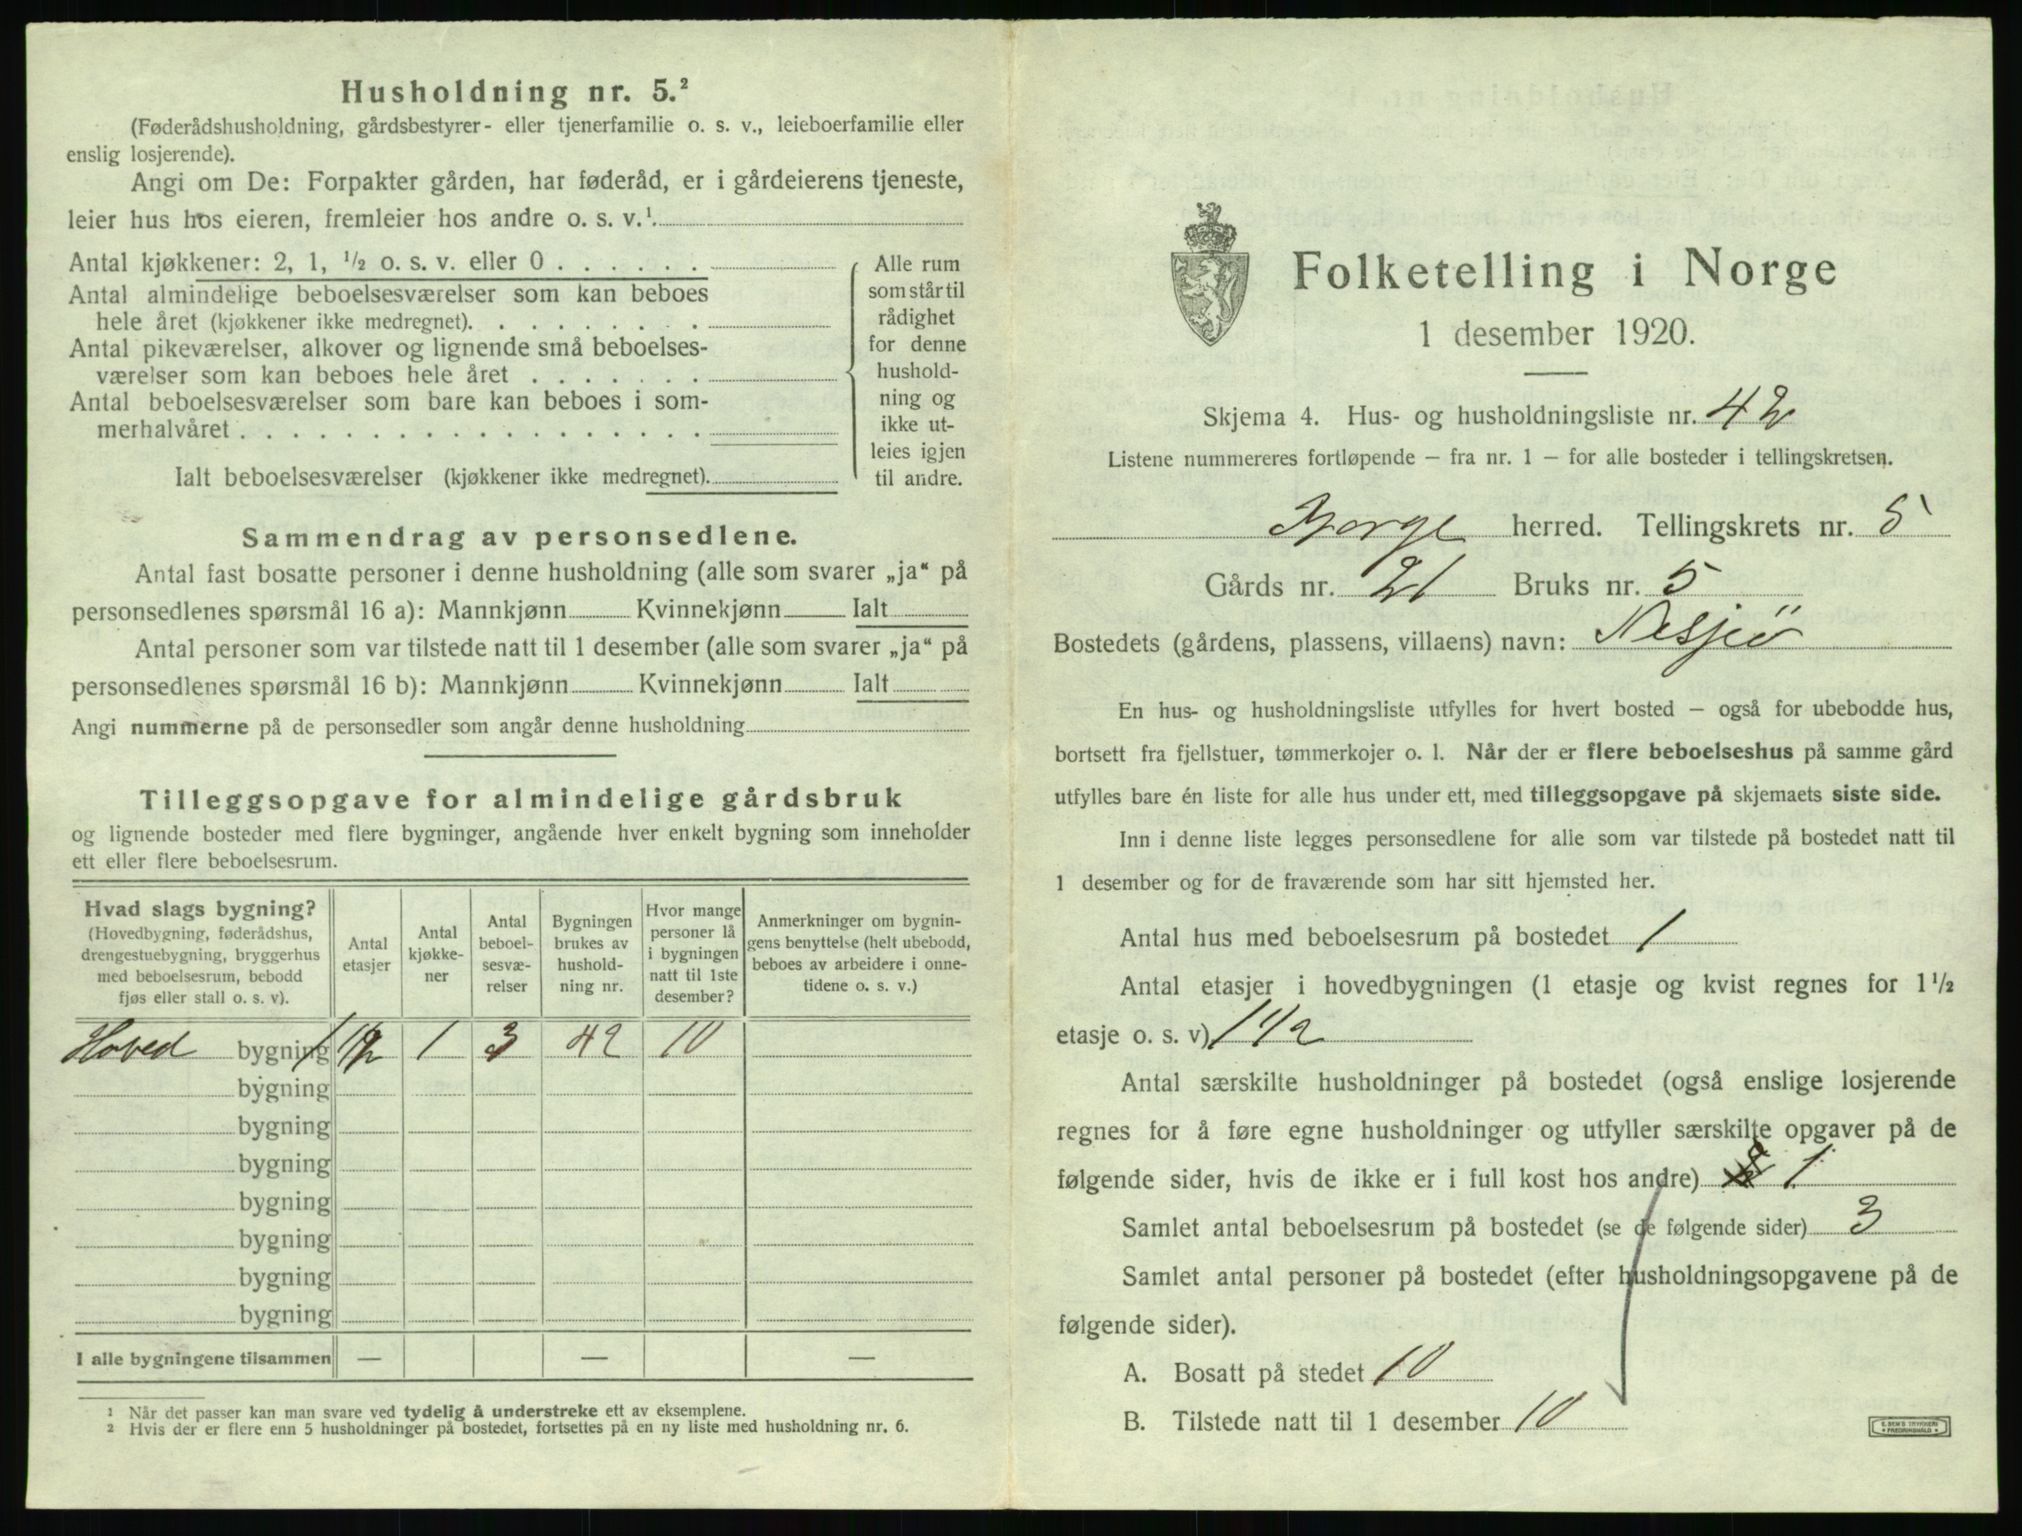 Husholdning nr. 5.²
(Føderådshusholdning, gårdsbestyrer- eller tjenerfamilie o. s. v., leieboerfamilie eller
enslig losjerende).
Angi om De: Forpakter gården, har føderåd, er i gårdeierens tjeneste,
leier hus hos eieren, fremleier hos andre o. s. v.¹
Antal kjøkkener: 2, 1, ½ o. s. v. eller 0
Antal almindelige beboelsesværelser som kan beboes
hele året (kjøkkener ikke medregnet).
Antal pikeværelser, alkover og lignende små beboelses-
værelser som kan beboes hele året
Antal beboelsesværelser som bare kan beboes i som-
merhalvåret
Ialt beboelsesværelser (kjøkkener ikke medregnet).
Alle rum
som står til
rådighet
for denne
hushold-
ning og
ikke ut-
leies igjen
til andre.
Sammendrag av personsedlene.
Antal fast bosatte personer i denne husholdning (alle som svarer „ja“ på
personsedlenes spørsmål 16 a): Mannkjønn Kvinnekjønn Ialt
Antal personer som var tilstede natt til 1 desember (alle som svarer „ja“ på
personsedlenes spørsmål 16 b): Mannkjønn Kvinnekjønn Ialt
Angi nummerne på de personsedler som angår denne husholdning
Tilleggsopgave for almindelige gårdsbruk
og lignende bosteder med flere bygninger, angående hver enkelt bygning som inneholder
ett eller flere beboelsesrum.
Hvad slags bygning?
(Hovedbygning, føderådshus,
drengestuebygning, bryggerhus
med beboelsesrum, bebodd
fjøs eller stall o. s. v).
Antal
etasjer
Antal
kjøkke-
ner
Antal
beboel-
sesvæ-
relser
Bygningen
brukes av
hushold-
ning nr.
Hvor mange
personer lå
i bygningen
natt til 1ste
desember?
Anmerkninger om bygnin-
gens benyttelse (helt ubebodd,
beboes av arbeidere i onne-
tidene o. s. v.)
Hoved bygning 1 1/2 1 3 42 10
bygning
bygning
bygning
bygning
bygning
bygning
bygning
I alle bygningene tilsammen — — —
¹ Når det passer kan man svare ved tydelig å understreke ett av eksemplene.
² Hvis der er flere enn 5 husholdninger på bostedet, fortsettes på en ny liste med husholdning nr. 6.
Folketelling i Norge
1 desember 1920.
Skjema 4. Hus- og husholdningsliste nr. 42
Listene nummereres fortløpende — fra nr. 1 — for alle bosteder i tellingskretsen.
Borge herred. Tellingskrets nr. 5
Gårds nr. 21 Bruks nr. 5
Bostedets (gårdens, plassens, villaens) navn: Nesjø
En hus- og husholdningsliste utfylles for hvert bosted — også for ubebodde hus,
bortsett fra fjellstuer, tømmerkojer o. l. Når der er flere beboelseshus på samme gård
utfylles bare én liste for alle hus under ett, med tilleggsopgave på skjemaets siste side.
Inn i denne liste legges personsedlene for alle som var tilstede på bostedet natt til
1 desember og for de fraværende som har sitt hjemsted her.
Antal hus med beboelsesrum på bostedet 1
Antal etasjer i hovedbygningen (1 etasje og kvist regnes for 1½
etasje o. s. v) 1 1/2
Antal særskilte husholdninger på bostedet (også enslige losjerende
regnes for å føre egne husholdninger og utfyller særskilte opgaver på de
følgende sider, hvis de ikke er i full kost hos andre) 1
Samlet antal beboelsesrum på bostedet (se de følgende sider) 3
Samlet antal personer på bostedet (efter husholdningsopgavene på de
følgende sider).
A. Bosatt på stedet 10
B. Tilstede natt til 1 desember 10
E. SEM'S TRYKKERI
FREDRIKSHALD